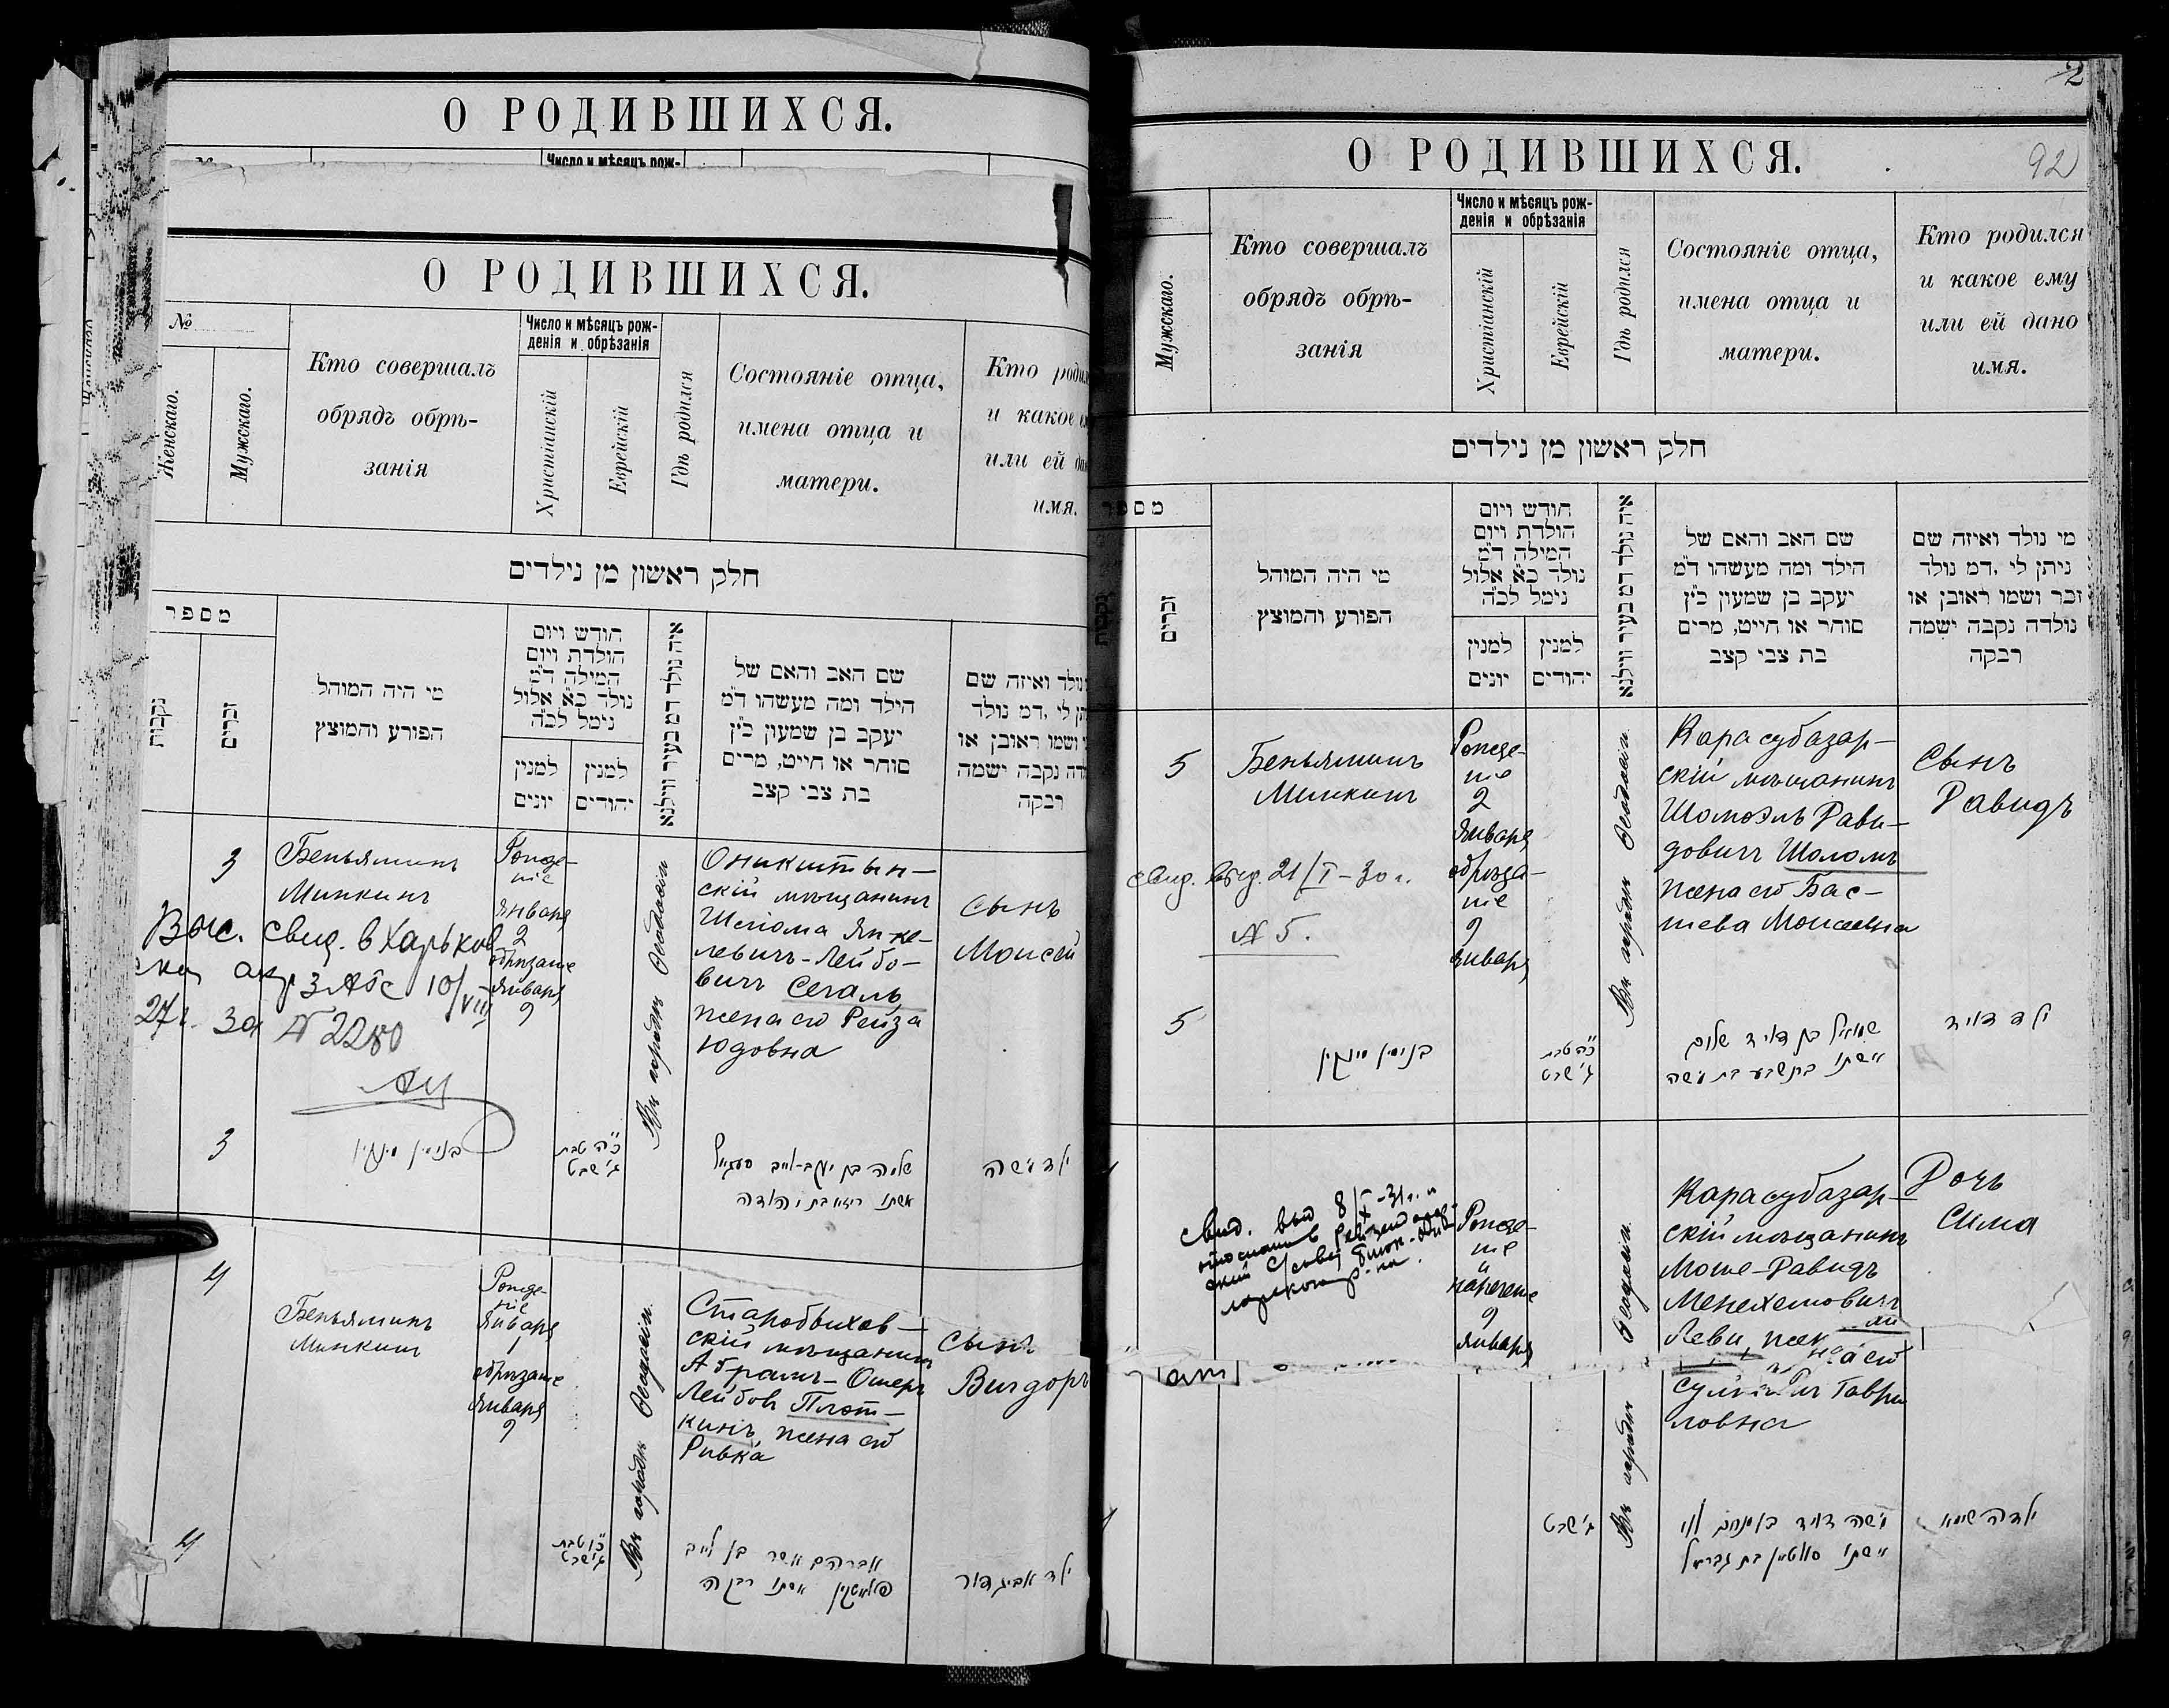 О РОДИВШИХСЯ.
Число и мѣсяцъ рож-
О РОДИВШИХСЯ.
№
Женскаго.
Мужскаго.
Кто совершалъ
обрядъ обрѣ-
занія
Число и мѣсяцъ рож-
денія и обрѣзанія
Христіанскій
Еврейскій
Гдѣ родился
Состояніе отца,
имена отца и
матери.
Кто
и какое
или ей
имя.
חלק ראשון מן נילדים
מספר
נקבות
זכרים
מי היה המוהל
הפורע והמוצץ
חודש ויום
הולדת ויום
המילה ד״מ
נולד כ״א אלול
נימל לכ״ה
למנין
יונים
למנין
יהודים
איה נולד דמ בעיר ווילנא
שם האב והאם של
הילד ומה מעשהו ד״מ
יעקב בן שמעון כ״ץ
סוחר או חייט, מרים
בת צבי קצב
נולד ואיזה שם
לי ,דמ נולד
ושמו ראובן או
נקבה ישמה
רבקה
3
Беньяминъ
Минкинъ
Рожде-
ніе
января
2
обрѣзаніе
января
9
Въ городѣ Ѳеодосіи
скій мѣщанинъ
Шлйома Янке-
левичъ-Лейбо-
вичъ Сегалъ,
жена его Рейза
Юдовна
сынъ
Моисей
Выс. свид. в Харьков
10/VIII
27 г. за № 2280
3
בנימין מינקין
כ״ה טבת
ג׳ שבט
שלמה בן יעקב-לייב סעגאל
אשתו רייזא בת יהודה
ילד משה
4
Беньяминъ
Минкинъ
Рожде-
ніе
января
1
обрѣзаніе
января
9
Въ городѣ Ѳеодосіи
Старобыхов-
скій мѣщанинъ
Абрамъ-Ошеръ
Лейбов Плот-
кинъ, жена его
Ривка
сынъ
Вигдоръ
4
טבת
ג׳ שבט
אברהם אשר בן לייב
פלאטקין אשתו רבקה
ילד אביגדור
2
О РОДИВШИХСЯ.
92
Мужскаго.
Кто совершалъ
обрядъ обрѣ-
занія
Число и мѣсяцъ рож-
денія и обрѣзанія
Христіанскій
Еврейскій
Гдѣ родился
Состояніе отца,
имена отца и
матери.
Кто родился
и какое ему
или ей дано
имя.
חלק ראשון מן נילדים
מספר
נקבות
זכרים
מי היה המוהל
הפורע והמוצץ
חודש ויום
הולדת ויום
המילה ד״מ
נולד כ״א אלול
נימל לכ״ה
למנין
יונים
למנין
יהודים
איה נולד דמ בעיר ווילנא
שם האב והאם של
הילד ומה מעשהו ד״מ
יעקב בן שמעון כ״ץ
סוחר או חייט, מרים
בת צבי קצב
מי נולד ואיזה שם
ניתן לי ,דמ נולד
זכר ושמו ראובן או
נולדה נקבה ישמה
רבקה
5
Беньяминъ
Минкинъ
Рожде-
ніе
2
января
обрѣза-
ніе
9
января
Въ городѣ Ѳеодосіи
Карасубазар-
скій мѣщанинъ
Шомоэль Дави-
довичъ Шоломъ
жена его Бас-
шева Моисеевна
Сынъ
Давидъ
свид. 21/I-30 г.
№ 5.
5
בנימין מינקין
כ״ה טבת
ג׳ שבט
שמואל בן דויד שלום
אשתו בתשבע בת משה
ילד דויד
свид. выд 8/X-31 г. и
Рожде-
ніе
и
нареченіе
9
января
Въ городѣ Ѳеодосіи
Карасубазар-
скій мѣщанинъ
Моше-Давидъ
Менахемовичъ
Леви, жена его
Гаври
ловна
Дочь
Сима
ג׳ שבט
משה דויד בן מנחם לוי
אשתו בת גבריאל
ילדה סימא